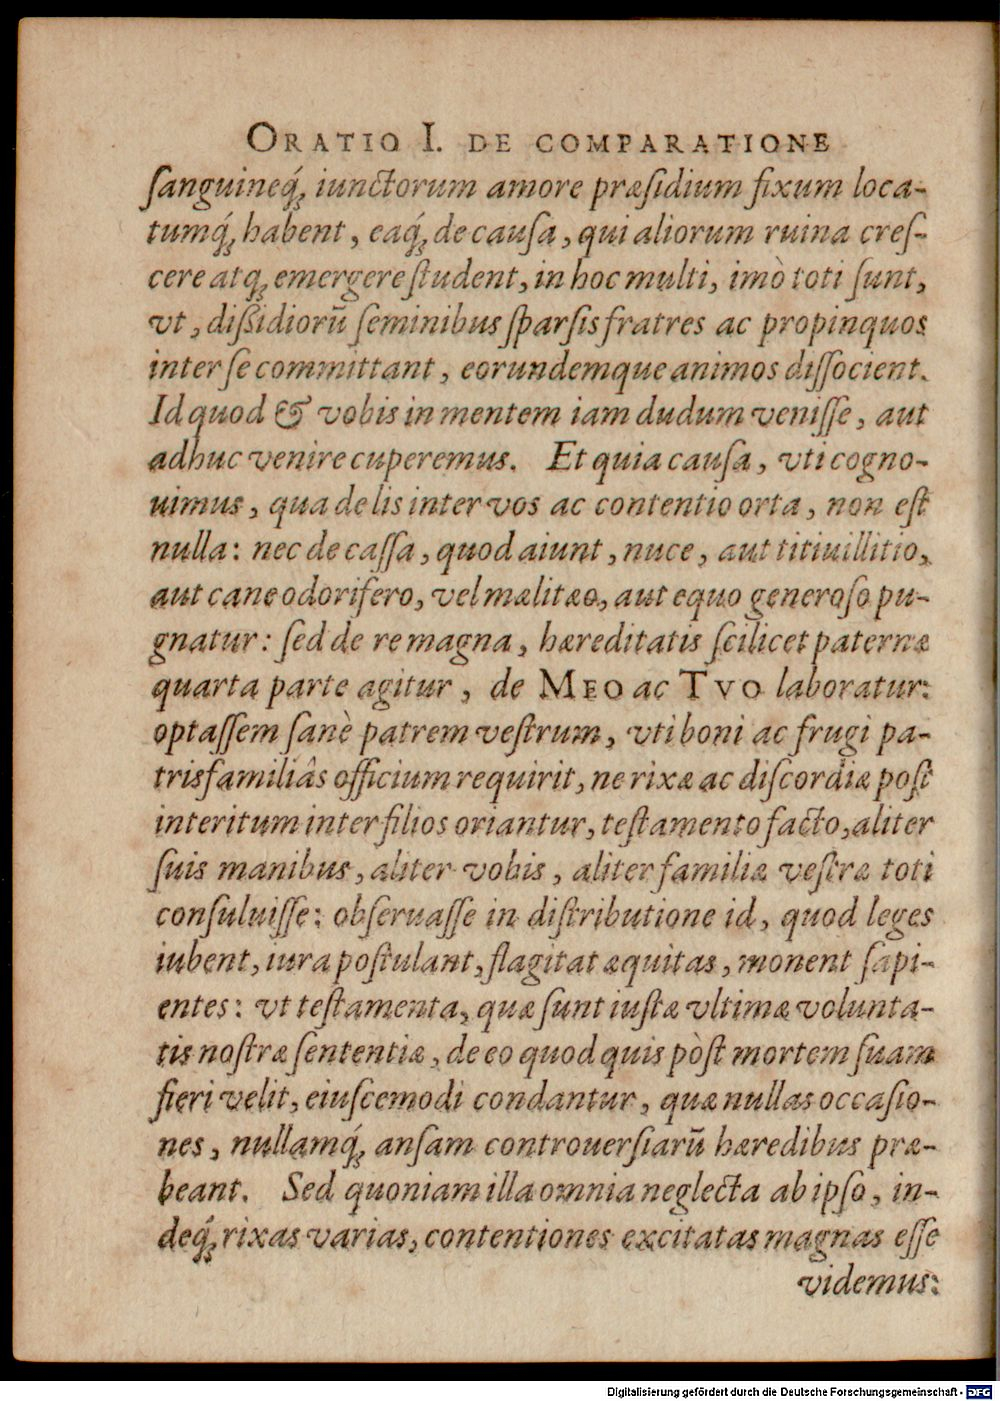 ORATIO I. DE COMPARATIONE
ſanguineq́ꝫ iunctorum amore præſidium fixum loca-
tumq́ꝫ habent, eaq́ꝫ de cauſa, qui aliorum ruina creſ-
cere atqꝫ emergere ſtudent, in hoc multi, imò toti ſunt,
vt, diſſidiorū ſeminibus ſparſis fratres ac propinquos
inter ſe committant, eorundemque animos diſſocient.
Id quod & vobis in mentem iam dudum veniſſe, aut
adhuc venire cuperemus. Et quia cauſa, vti cogno-
uimus, qua de lis inter vos ac contentio orta, non eſt
nulla: nec de caſſa, quod aiunt, nuce, aut titiuillitio,
aut cane odorifero, vel mælitæo, aut equo generoſo pu-
gnatur: ſed de re magna, hæreditatis ſcilicet paternæ
quarta parte agitur, de MEO ac TVO laboratur:
optaſſem ſanè patrem veſtrum, vti boni ac frugi pa-
trisfamiliâs officium requirit, ne rixæ ac diſcordiæ poſt
interitum inter filios oriantur, teſtamento facto, aliter
ſuis manibus, aliter vobis, aliter familiæ veſtræ toti
conſuluiſſe: obſeruaſſe in diſtributione id, quod leges
iubent, iura poſtulant, flagitat æquitas, monent ſapi-
entes: vt teſtamenta, quæ ſunt iuſtæ vltimæ volunta-
tis noſtræ ſententiæ, de eo quod quis pòſt mortem ſuam
fieri velit, eiuſcemodi condantur, quæ nullas occaſio-
nes, nullamq́ꝫ anſam controuerſiarū hæredibus præ-
beant. Sed quoniam illa omnia neglecta ab ipſo, in-
deq́ꝫ rixas varias, contentiones excitatas magnas eſſe
videmus:
Digitalisierung gefördert durch die Deutsche Forschungsgemeinschaft - DFG